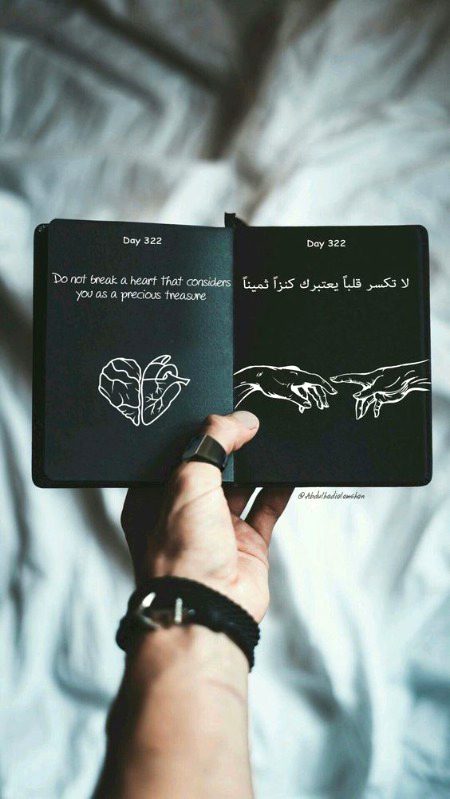 Day 322
Do not break a heart that considers
you as a precious treasure
Day 322
لا تكسر قلباً يعتبرك كنزاً ثميناً
@Abdulhadialemshan